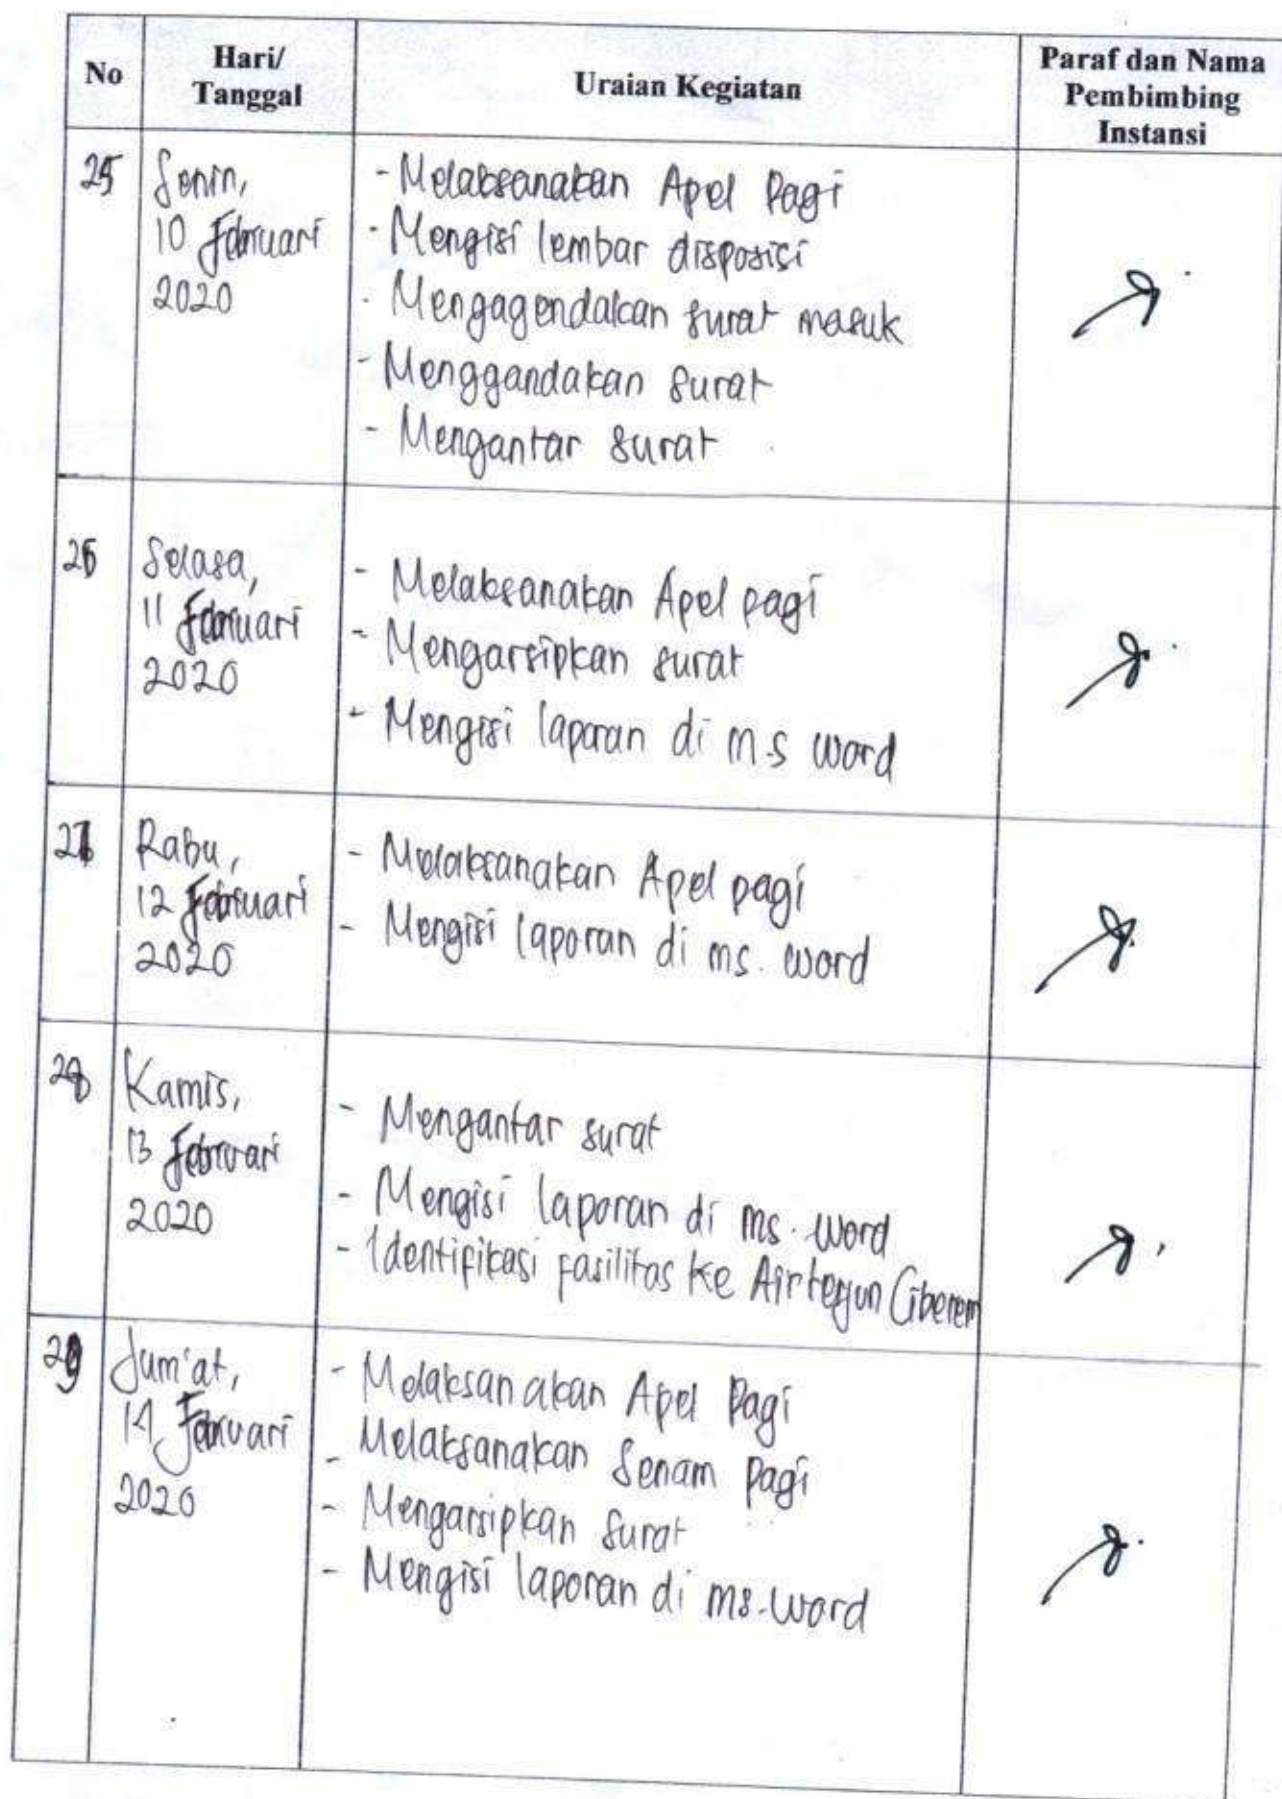 No
Hari/
Tanggal
Uraian Kegiatan
Paraf dan Nama
Pembimbing
Instansi
25
Senin,
10 Februari
2020
- Melaksanakan Apel Pagi
- Mengisi lembar disposisi
- Mengagendakan surat masuk
- Menggandakan surat
- Mengantar surat
26
Selasa,
11 Februari
2020
- Melaksanakan Apel pagi
- Mengarsipkan surat
- Mengisi laporan di m.s word
27
Rabu,
12 Februari
2020
- Melaksanakan Apel pagi
- Mengisi laporan di ms. word
28
Kamis,
13 Februari
2020
- Mengantar surat
- Mengisi laporan di ms. word
- Identifikasi fasilitas ke Air terjun Ciberem
29
Jum'at,
14 Februari
2020
- Melaksanakan Apel Pagi
- Melaksanakan Senam pagi
- Mengarsipkan surat
- Mengisi laporan di ms.word